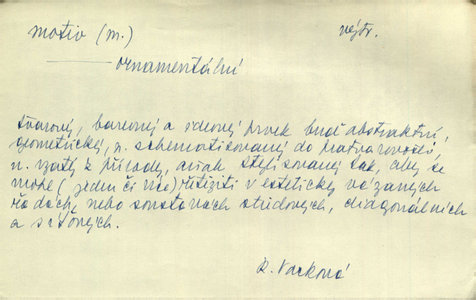 motiv (m.) výtv.
ornamentální
tvarový, barevný a ideový prvek buď abstraktní,
geometrický, n. schematisovaný do
n. vzatý z přírody, avšak stylisovaný tak, aby se
mohl (jeden či více) řetěziti v esteticky vázaných
řadách, nebo soustavách středových, diagonálních
a síťových.
R. Vacková